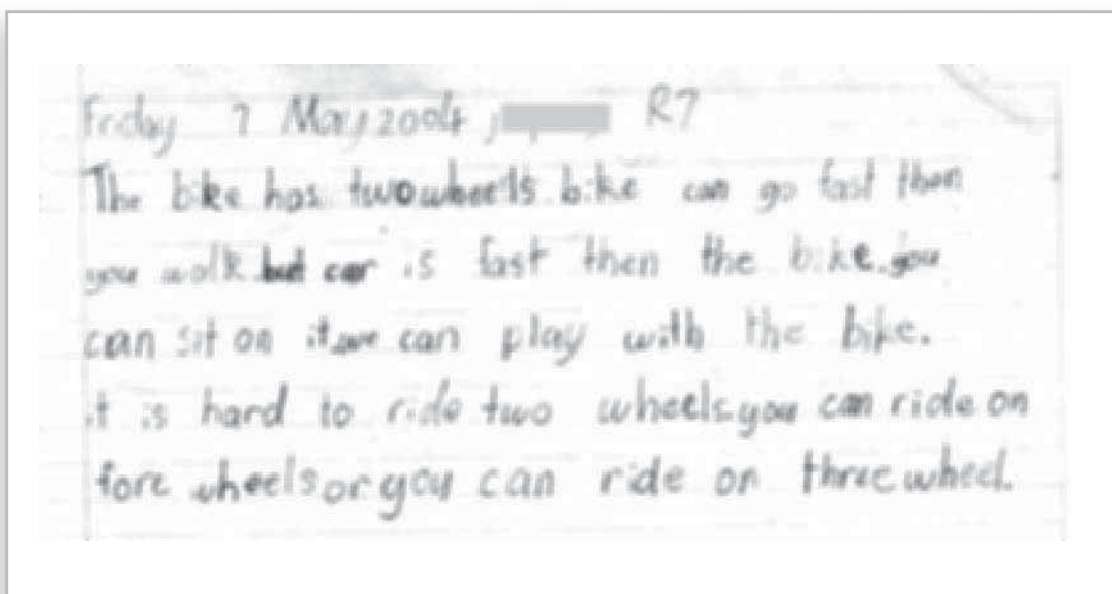 Friday 7 May 2004 R7
The bike has two wheels. bike can go fast then
you walk. but car is fast then the bike. you
can sit on it. we can play with the bike.
it is hard to ride two wheels. you can ride on
fore wheels or you can ride on three wheel.